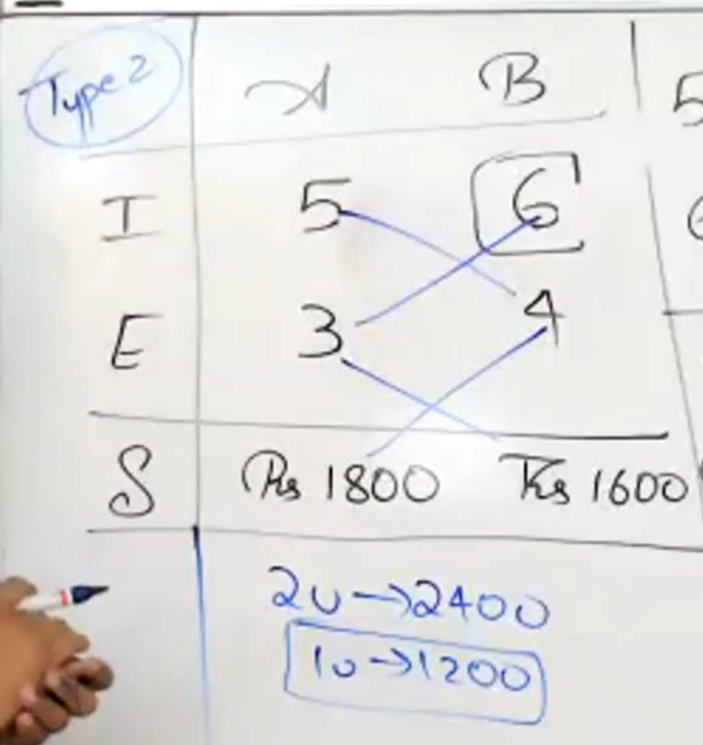 Type 2
A B
I 5 6
E 3 4
S Rs 1800 Rs 1600
2u→2400
1u→1200
5